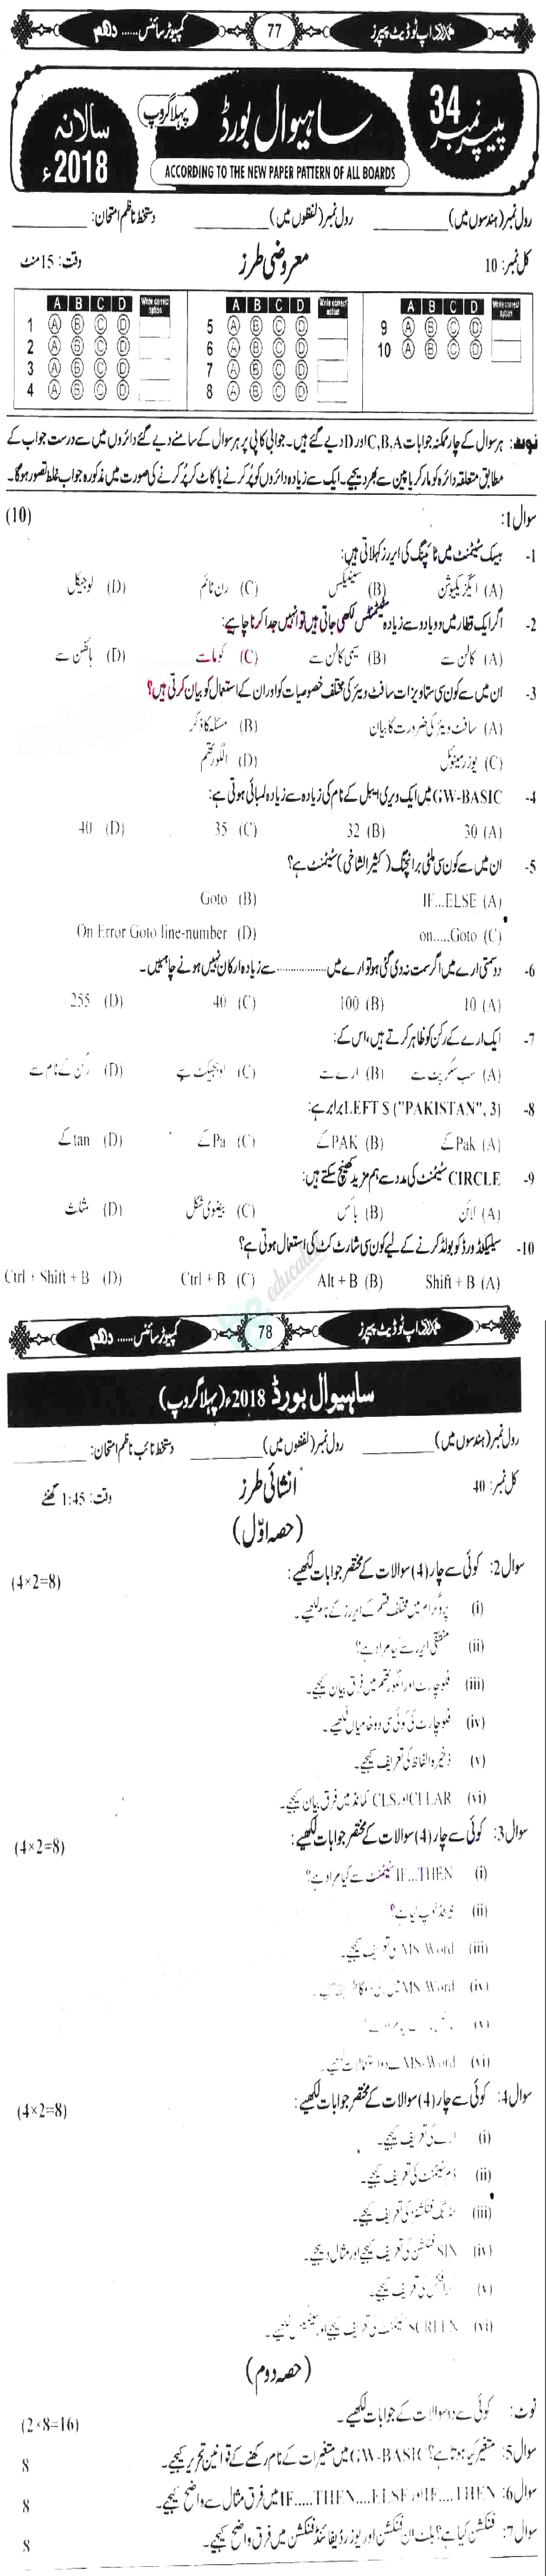 کمپیوٹر سائنس ..... دہم 77 ہمدرد اپ ٹو ڈیٹ پیپرز
پیپر نمبر 34
ساہیوال بورڈ
پہلا گروپ
سالانہ 2018ء
ACCORDING TO THE NEW PAPER PATTERN OF ALL BOARDS
رول نمبر (ہندسوں میں) ________ رول نمبر (لفظوں میں) ________ دستخط ناظم امتحان: ________
کل نمبر: 10 معروضی طرز وقت: 15 منٹ
A B C D Write correct option A B C D Write correct option A B C D Write correct option
1 A B C D 5 A B C D 9 A B C D
2 A B C D 6 A B C D 10 A B C D
3 A B C D 7 A B C D
4 A B C D 8 A B C D
نوٹ: ہر سوال کے چار ممکنہ جوابات C,B,A اور D دیے گئے ہیں۔ جوابی کاپی پر ہر سوال کے سامنے دیے گئے دائروں میں سے درست جواب کے
مطابق متعلقہ دائرہ کو مارکر یا پین سے بھر دیجیے۔ ایک سے زیادہ دائروں کو پُر کرنے یا کاٹ کر پُر کرنے کی صورت میں مذکورہ جواب غلط تصور ہوگا۔
سوال 1: (10)
1- بیسک سٹیٹمنٹ میں ٹائپنگ کی ایررز کہلاتی ہیں:
(A) ایگزیکیوشن (B) سینٹیکس (C) رن ٹائم (D) لوجیکل
2- اگر ایک قطار میں دو یا دو سے زیادہ سٹیٹمنٹس لکھی جاتی ہیں تو انہیں جدا کرنا چاہیے:
(A) کالن سے (B) سیمی کالن سے (C) کوما سے (D) ہائفن سے
3- ان میں سے کون سی دستاویزات سافٹ ویئر کی مختلف خصوصیات کو اور ان کے استعمال کو بیان کرتی ہیں؟
(A) سافٹ ویئر کی ضرورت کا بیان (B) مسئلہ کا ذکر
(C) یوزر مینوئل (D) الگورتھم
4- GW-BASIC میں ایک ویری ایبل کے نام کی زیادہ سے زیادہ لمبائی ہوتی ہے:
(A) 30 (B) 32 (C) 35 (D) 40
5- ان میں سے کون سی ملٹی برانچنگ (کثیر الشاخی) سٹیٹمنٹ ہے؟
(A) IF...ELSE (B) Goto
(C) on.....Goto (D) On Error Goto line-number
6- دو سمتی ارے میں اگر سمت نہ دی گئی ہو تو ارے میں ............... سے زیادہ ارکان نہیں ہونے چاہئیں۔
(A) 10 (B) 100 (C) 40 (D) 255
7- ایک ارے کے رکن کو ظاہر کرتے ہیں، اس کے:
(A) سب سکرپٹ سے (B) ارے سے (C) اوبجیکٹ سے (D) رکن کے نام سے
8- LEFT $ ("PAKISTAN", 3) برابر ہے:
(A) Pak کے (B) PAK کے (C) Pa کے (D) tan کے
9- CIRCLE سٹیٹمنٹ کی مدد سے ہم مزید کھینچ سکتے ہیں:
(A) لائن (B) باکس (C) بیضوی شکل (D) مثلث
10- سلیکٹڈ ورڈ کو بولڈ کرنے کے لیے کون سی شارٹ کٹ کی استعمال ہوتی ہے؟
(A) Shift + B (B) Alt + B (C) Ctrl + B (D) Ctrl + Shift + B
کمپیوٹر سائنس ..... دہم 78 ہمدرد اپ ٹو ڈیٹ پیپرز
ساہیوال بورڈ 2018ء (پہلا گروپ)
رول نمبر (ہندسوں میں) ________ رول نمبر (لفظوں میں) ________ دستخط نائب ناظم امتحان: ________
کل نمبر: 40 انشائی طرز وقت: 1:45 گھنٹے
(حصہ اوّل)
سوال 2: کوئی سے چار (4) سوالات کے مختصر جوابات لکھیے: (4×2=8)
(i) پروگرام میں مختلف قسم کے ایررز کے نام لکھیے۔
(ii) منطقی ایرر سے کیا مراد ہے؟
(iii) فلو چارٹ اور الگورتھم میں فرق بیان کیجیے۔
(iv) فلو چارٹ کی کوئی سی دو خامیاں لکھیے۔
(v) ذخیرہ الفاظ کی تعریف کیجیے۔
(vi) CLEAR اور CLS کمانڈ میں فرق بیان کیجیے۔
سوال 3: کوئی سے چار (4) سوالات کے مختصر جوابات لکھیے: (4×2=8)
(i) IF...THEN سٹیٹمنٹ سے کیا مراد ہے؟
(ii) لوپ کیا ہے؟
(iii) MS-Word کی تعریف کیجیے۔
(iv) MS-Word میں
(v)
(vi) MS-Word کے دو استعمالات لکھیے۔
سوال 4: کوئی سے چار (4) سوالات کے مختصر جوابات لکھیے: (4×2=8)
(i) ارے کی تعریف کیجیے۔
(ii) ڈم سٹیٹمنٹ کی تعریف کیجیے۔
(iii) سٹرنگ فنکشنز کی تعریف کیجیے۔
(iv) SIN فنکشن کی تعریف کیجیے اور مثال دیجیے۔
(v) گرافکس کی تعریف کیجیے۔
(vi) SCREEN سٹیٹمنٹ کی تعریف کیجیے اور سینٹیکس لکھیے۔
(حصہ دوم)
نوٹ: کوئی سے دو سوالات کے جوابات لکھیے۔ (2×8=16)
سوال 5: متغیر کیا ہوتا ہے؟ GW-BASIC میں متغیرات کے نام رکھنے کے قوانین تحریر کیجیے۔ 8
سوال 6: IF.....THEN اور IF.....THEN.....ELSE میں فرق مثال سے واضح کیجیے۔ 8
سوال 7: فنکشن کیا ہے؟ بلٹ ان فنکشن اور یوزر ڈیفائنڈ فنکشن میں فرق واضح کیجیے۔ 8